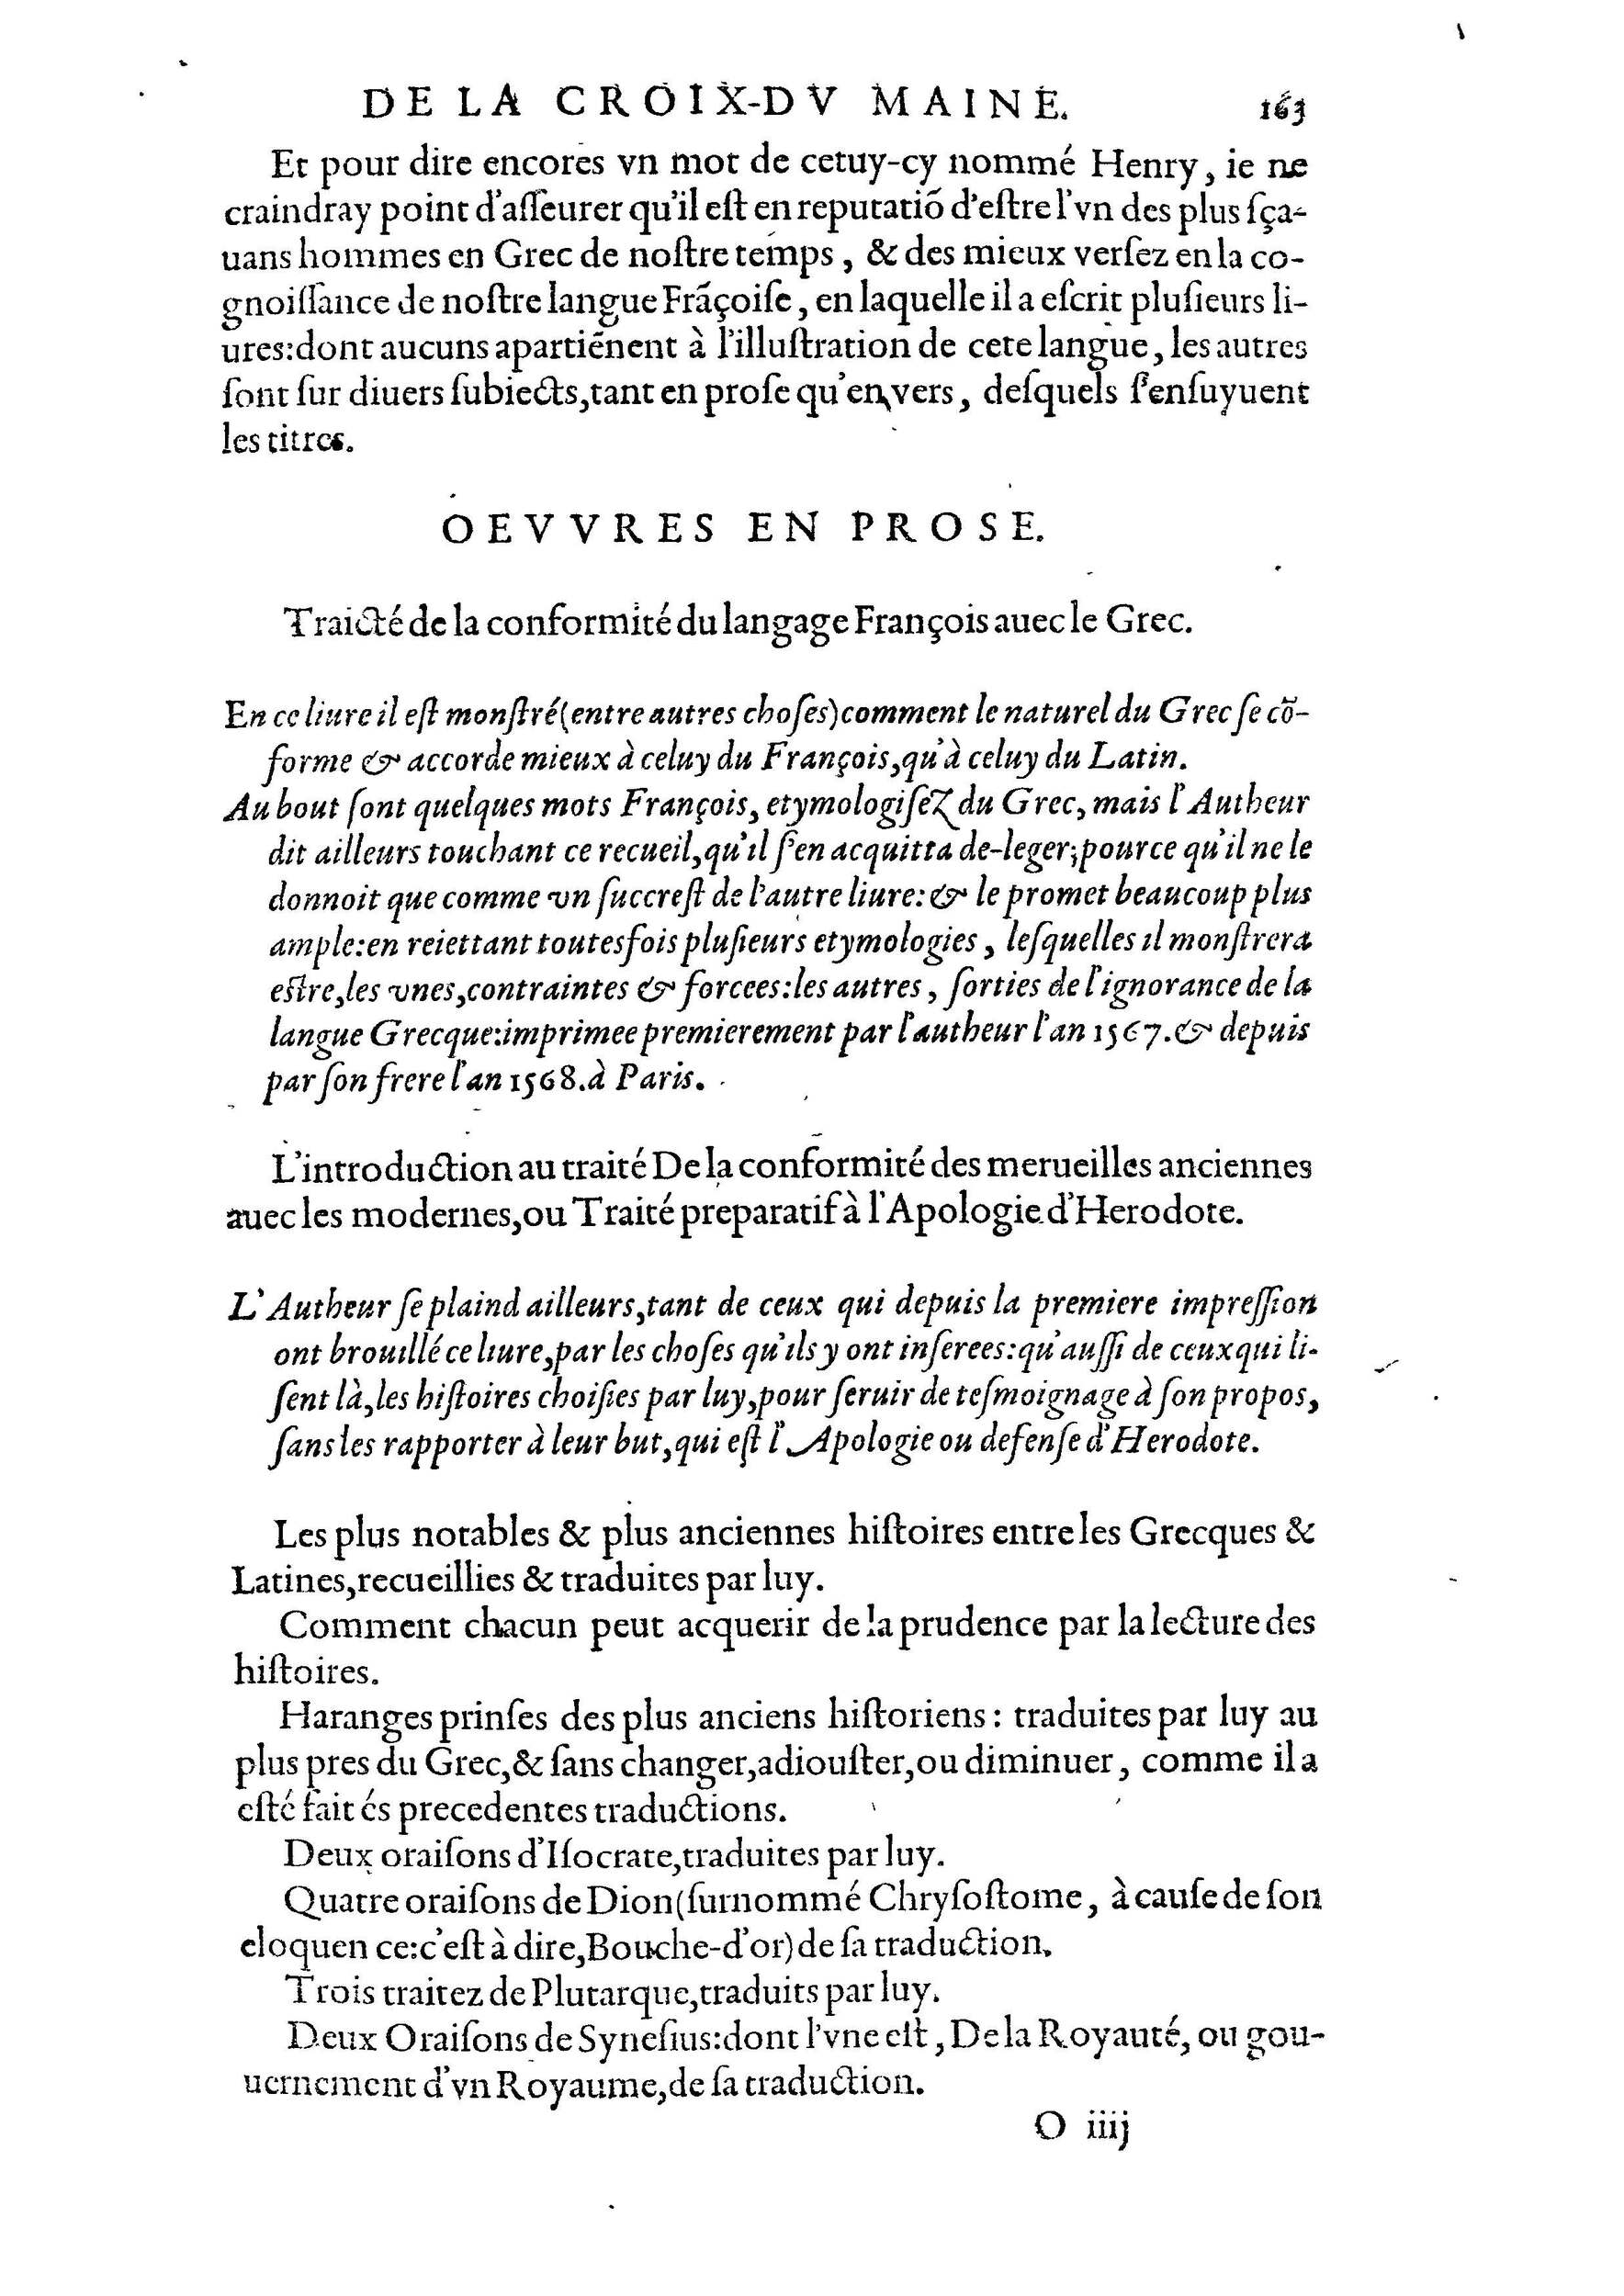 DE LA CROIX-DV MAINE. 163
Et pour dire encores vn mot de cetuy-cy nommé Henry, ie ne
craindray point d'aſſeurer qu'il eſt en reputatiõ d'eſtre l'vn des plus ſça-
uans hommes en Grec de noſtre temps, & des mieux verſez en la co-
gnoiſſance de noſtre langue Frãçoiſe, en laquelle il a eſcrit pluſieurs li-
ures:dont aucuns apartiẽnent à l'illuſtration de cete langue, les autres
ſont ſur diuers ſubiects,tant en proſe qu'en vers, deſquels ſ'enſuyuent
les titres.
OEVVRES EN PROSE.
Traicté de la conformité du langage François auec le Grec.
En ce liure il eſt monſtré(entre autres choſes)comment le naturel du Grec ſe cõ-
forme & accorde mieux à celuy du François,qu'à celuy du Latin.
Au bout ſont quelques mots François, etymologiſez du Grec, mais l'Autheur
dit ailleurs touchant ce recueil,qu'il ſ'en acquitta de-leger;pource qu'il ne le
donnoit que comme vn ſuccreſt de l'autre liure:& le promet beaucoup plus
ample:en reiettant toutesfois pluſieurs etymologies, leſquelles il monſtrera
eſtre,les vnes,contraintes & forcees:les autres, ſorties de l'ignorance de la
langue Grecque:imprimee premierement par l'autheur l'an 1567.& depuis
par ſon frere l'an 1568.à Paris.
L'introduction au traité De la conformité des merueilles anciennes
auec les modernes,ou Traité preparatif à l'Apologie d'Herodote.
L'Autheur ſe plaind ailleurs,tant de ceux qui depuis la premiere impreſſion
ont brouillé ce liure,par les choſes qu'ils y ont inſerees:qu'auſſi de ceux qui li-
ſent là,les hiſtoires choiſies par luy,pour ſeruir de teſmoignage à ſon propos,
ſans les rapporter à leur but,qui eſt l'Apologie ou defenſe d'Herodote.
Les plus notables & plus anciennes hiſtoires entre les Grecques &
Latines,recueillies & traduites par luy.
Comment chacun peut acquerir de la prudence par la lecture des
hiſtoires.
Haranges prinſes des plus anciens hiſtoriens: traduites par luy au
plus pres du Grec,& ſans changer,adiouſter,ou diminuer, comme il a
eſté fait és precedentes traductions.
Deux oraiſons d'Iſocrate,traduites par luy.
Quatre oraiſons de Dion(ſurnommé Chryſoſtome, à cauſe de ſon
eloquen ce:c'eſt à dire,Bouche-d'or)de ſa traduction.
Trois traitez de Plutarque,traduits par luy.
Deux Oraiſons de Syneſius:dont l'vne eſt, De la Royauté, ou gou-
uernement d'vn Royaume,de ſa traduction.
O iiij